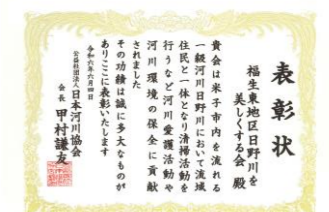 表彰状
福生東地区日野川を
美しくする会 殿
貴会は米子市内を流れる
一級河川日野川において流域
住民と一体となり清掃活動を
行うなど河川愛護活動や
河川環境の保全に貢献
されました
その功績は誠に多大なものが
ありここに表彰いたします
令和六年六月四日
公益社団法人日本河川協会
会長 甲村謙友